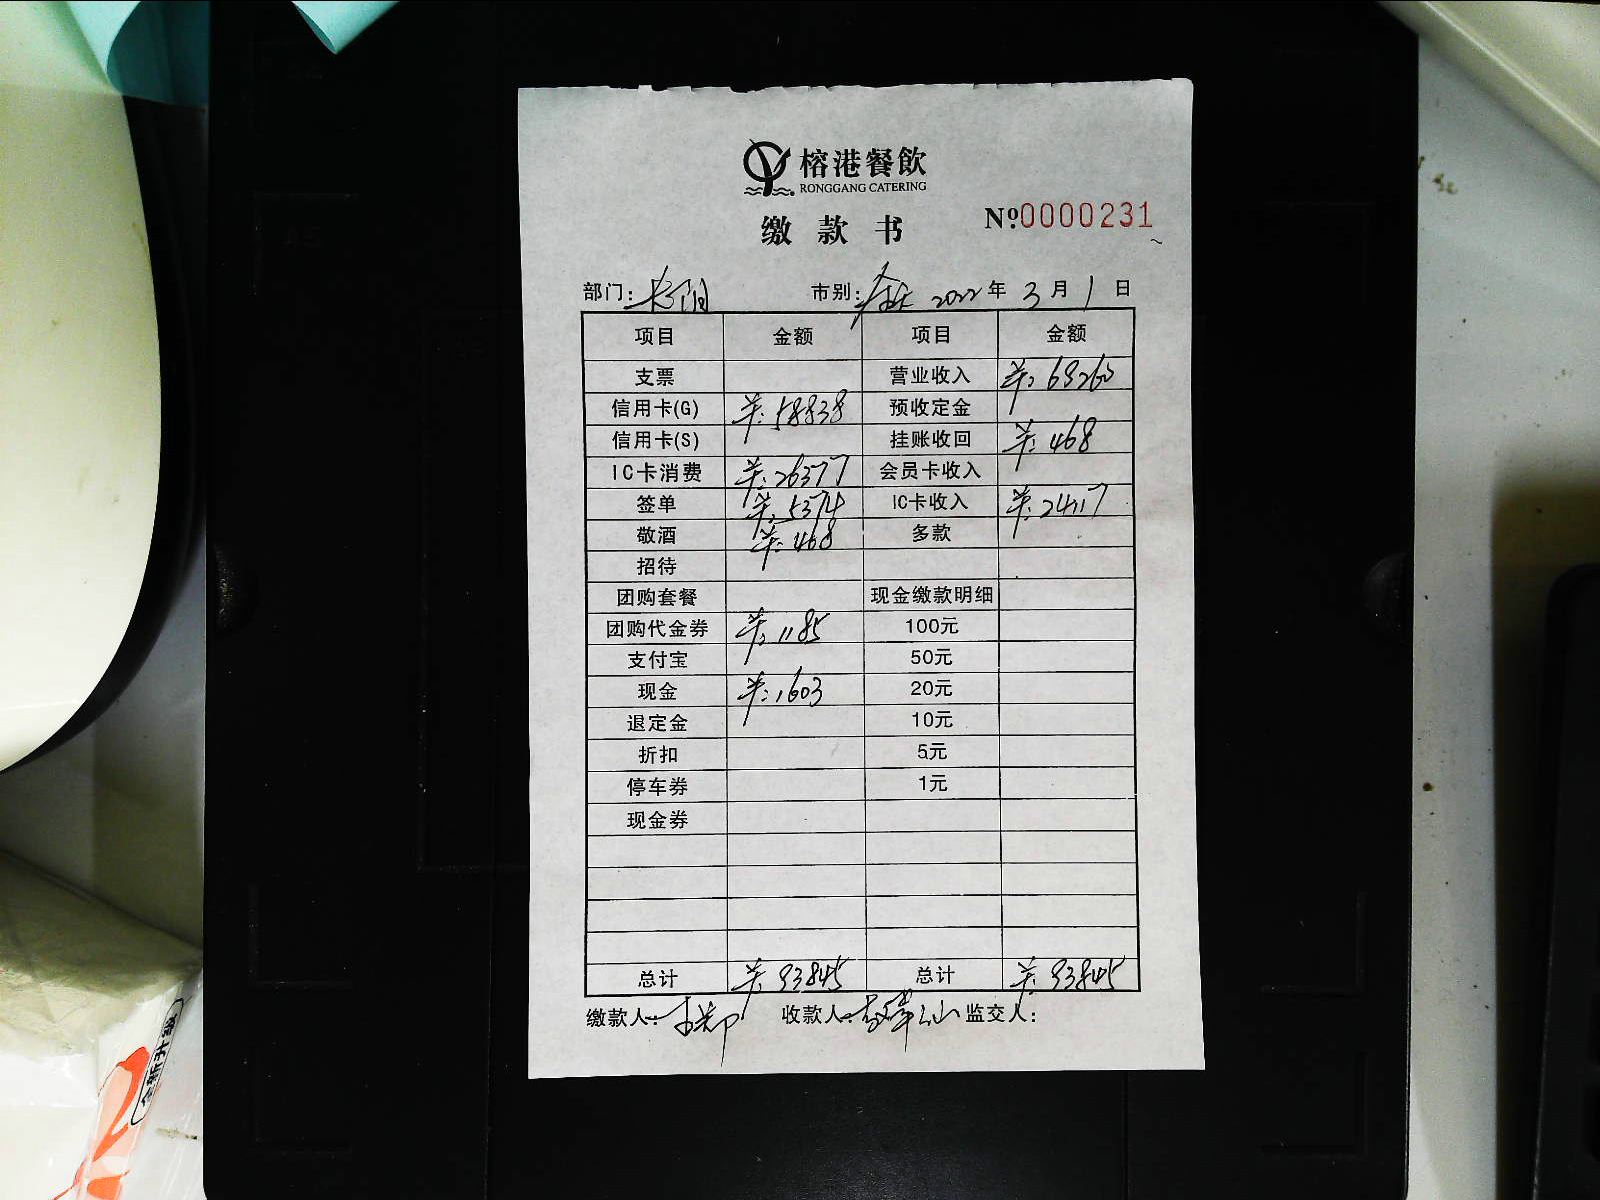 榕港餐飲
RONGGANG CATERING
缴款书
№0000231
部门: 长阳 市别: 2022年 3月 1日
项目 金额 项目 金额
支票 营业收入 ¥:69260
信用卡(G) ¥:58838 预收定金
信用卡(S) 挂账收回 ¥:468
IC卡消费 ¥:26377 会员卡收入
签单 ¥:5374 IC卡收入 ¥:24117
敬酒 ¥:468 多款
招待
团购套餐 现金缴款明细
团购代金券 ¥:1185 100元
支付宝 50元
现金 ¥:1603 20元
退定金 10元
折扣 5元
停车券 1元
现金券
总计 ¥:93845 总计 ¥:93845
缴款人: 收款人: 监交人:
全新升级